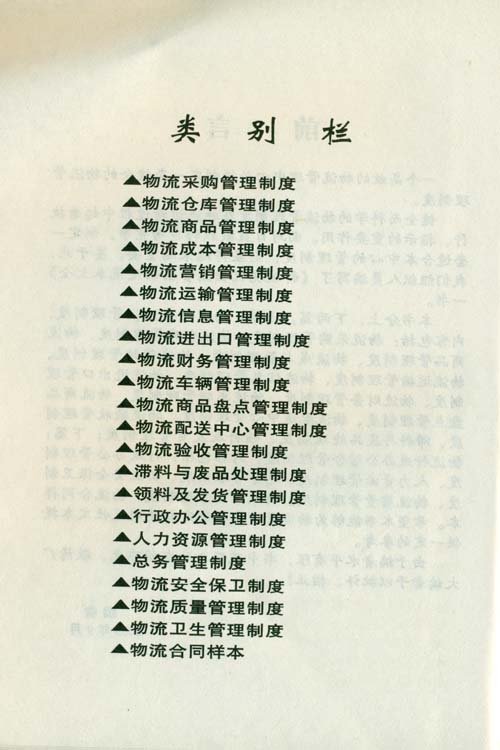 类别栏
▲物流采购管理制度
▲物流仓库管理制度
▲物流商品管理制度
▲物流成本管理制度
▲物流营销管理制度
▲物流运输管理制度
▲物流信息管理制度
▲物流进出口管理制度
▲物流财务管理制度
▲物流车辆管理制度
▲物流商品盘点管理制度
▲物流配送中心管理制度
▲物流验收管理制度
▲滞料与废品处理制度
▲领料及发货管理制度
▲行政办公管理制度
▲人力资源管理制度
▲总务管理制度
▲物流安全保卫制度
▲物流质量管理制度
▲物流卫生管理制度
▲物流合同样本